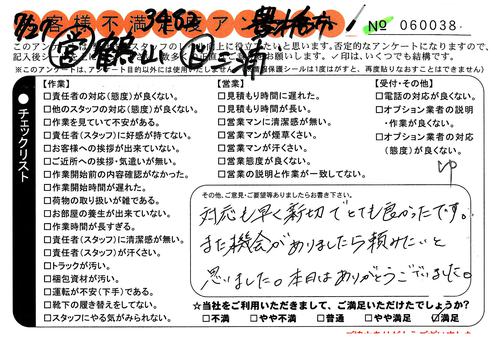 7/29
3482
お客様不満足度アンケート
№ 060038
営
三浦
※このアンケートは、アンケート目的以外には使用いたしません
チェックリスト
【作業】
□責任者の対応(態度)が良くない。
□他のスタッフの対応(態度)が良くない。
□作業を見ていて不安がある。
□責任者(スタッフ)に好感が持てない。
□お客様への挨拶が出来ていない。
□ご近所への挨拶・気遣いが無い。
□作業開始前の内容確認がなかった。
□作業開始時間が遅れた。
□荷物の取り扱いが雑である。
□お部屋の養生が出来ていない。
□作業時間が長すぎる。
□責任者(スタッフ)に清潔感が無い。
□責任者(スタッフ)が汗くさい。
□トラックが汚い。
□梱包資材が汚い。
□運転が不安(下手)である。
□靴下の履き替えをしてない。
□スタッフにやる気がみられない。
【営業】
□見積もり時間に遅れた。
□見積もり時間が長い。
□営業マンに清潔感が無い。
□営業マンが煙草くさい。
□営業マンが汗くさい。
□営業態度が良くない。
□営業の説明と作業が一致してない。
【受付・その他】
□電話の対応が良くない。
□オプション業者の説明
・作業が良くない。
□オプション業者の対応
(態度)が良くない。
その他、ご意見・ご要望等ありましたらお書き下さい。
対応も早く親切でとても良かったです。
また機会がありましたら頼みたいと
思いました。本日はありがとうございました。
☆当社をご利用いただきまして、ご満足いただけたでしょうか?
□不満 □やや不満 □普通 □やや満足 ☑満足